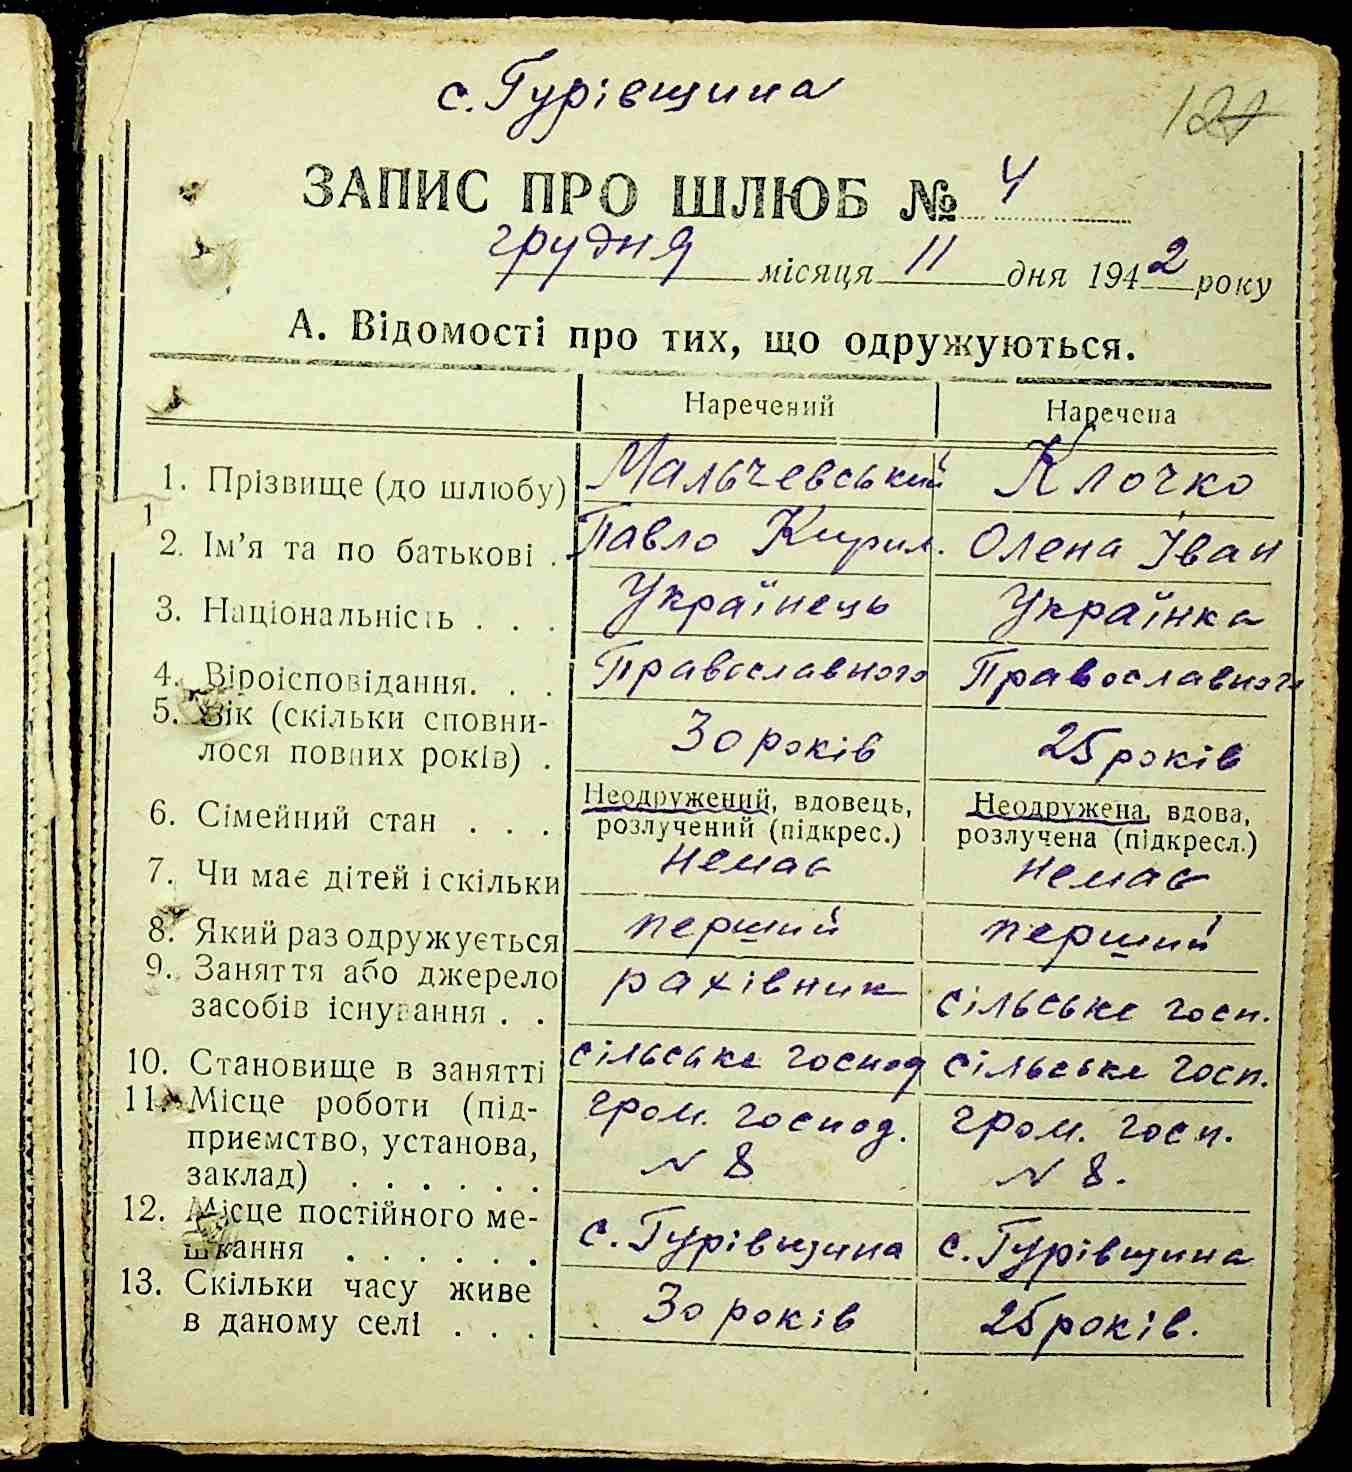 с. Гурівщина
ЗАПИС ПРО ШЛЮБ № 4
грудня місяця 11 дня 1942 року
А. Відомості про тих, що одружуються.
Наречений Наречена
1. Прізвище (до шлюбу) Мальчевський Клочко
2. Ім'я та по батькові . Павло Кирил. Олена Іван
3. Національність . . . Українець Українка
4. Віроісповідання. . . Православного Православного
5. Вік (скільки сповни-
лося повних років) . 30 років 25 років
6. Сімейний стан . . . Неодружений, вдовець, розлучений (підкрес.) Неодружена, вдова, розлучена (підкресл.)
7. Чи має дітей і скільки немає немає
8. Який раз одружується перший перший
9. Заняття або джерело
засобів існування . . рахівник сільське госп.
10. Становище в занятті сільське господ сільське госп.
11. Місце роботи (під- гром. господ. гром. госп.
приємство, установа,
заклад) . . . . . . N 8 N 8.
12. Місце постійного ме-
шкання . . . . . . с. Гурівщина с. Гурівщина
13. Скільки часу живе
в даному селі . . . 30 років 25 років.